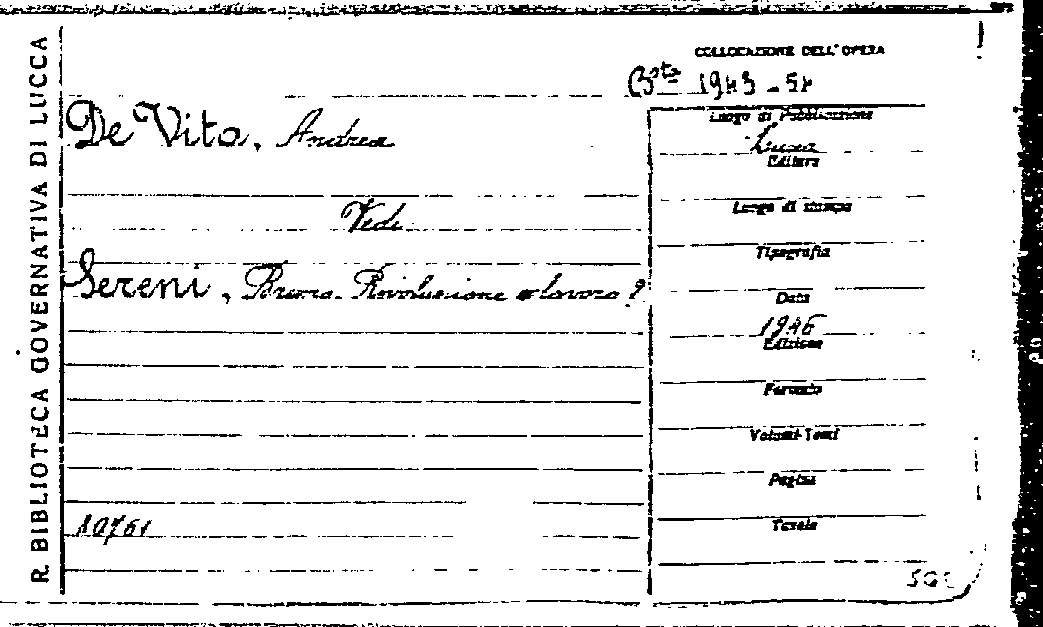 R. BIBLIOTECA GOVERNATIVA DI LUCCA
COLLOCAZIONE DELL'OPERA
Bsta 1943-54
De Vita, Andrea
Vedi
Sereni, Bruno. Rivoluzione e lavoro?
10761
Luogo di Pubblicazione
Lucca
Editore
Luogo di stampa
Tipografia
Data
1946
Edizione
Formato
Volumi-Tomi
Pagine
Tavole